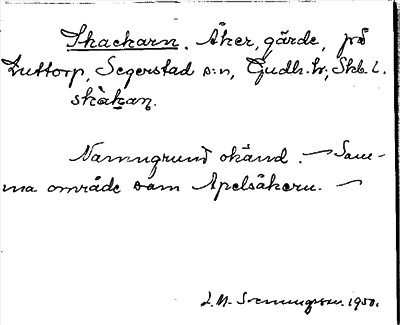 Skackarn. Åker, gärde, på
Luttorp, Segerstad s:n, Gudh. hr; Skb. l.
skàkan.
Namngrund okänd. — Sam-
ma område som Apelsåkern. —
L. M. Svenungsson. 1950.